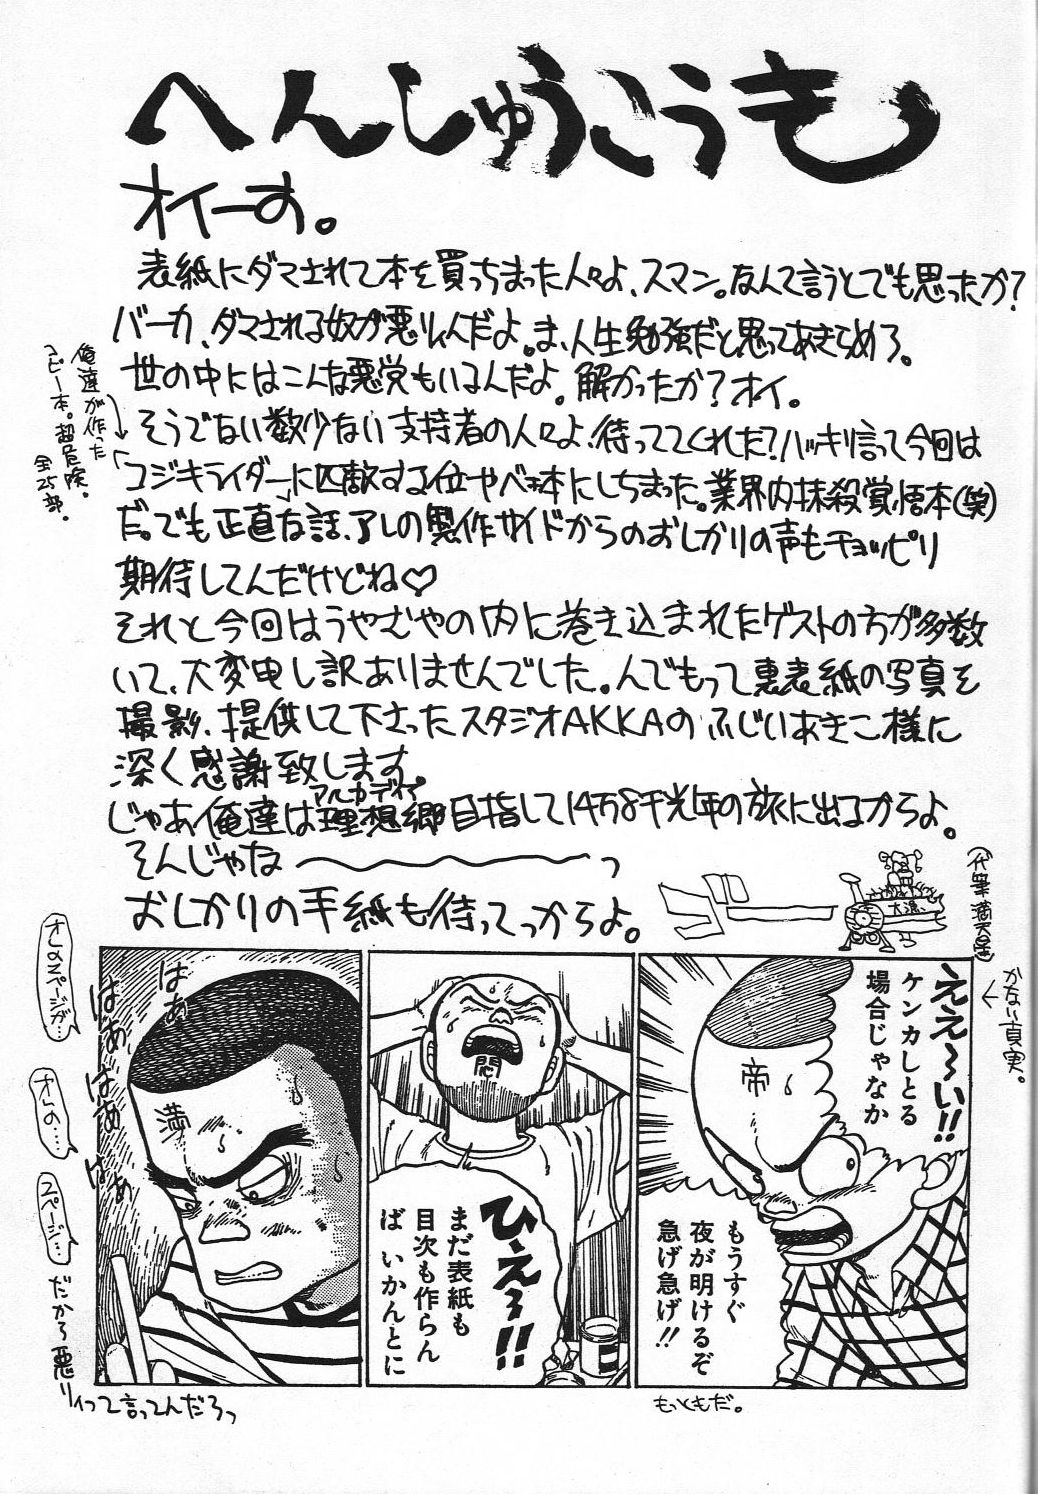 へんしゅうこうき
オイーす。
表紙にダマされて本を買っちまった人々よ、スマン。なんて言うとでも思ったか?
バーカ、ダマされる奴が悪りぃんだよ。ま、人生勉強だと思ってあきらめろ。
世の中にはこんな悪党もいるんだよ。解かったか?オイ。
そうでない数少ない支持者の人々よ、待っててくれた?ハッキリ言って今回は
コジキライダーに匹敵する位ヤベェ本にしちまった。業界内抹殺覚悟本(笑)
だ。でも正直な話、アレの製作サイドからのおしかりの声もチョッピリ
期待してんだけどね♡
それと今回はうやむやの内に巻き込まれたゲストの方が多数
いて、大変申し訳ありませんでした。んでもって裏表紙の写真を
撮影、提供して下さったスタジオAKKAのふじいあきこ様に
深く感謝致します。
じゃあ俺達は理想郷目指して14万8千光年の旅に出るからよ。
アルカディア
そんじゃな〜っ
おしかりの手紙も待ってっからよ。
俺達が作った
コピー本。超危険。
全25部。
大漁
(代筆 満天星)
かない真実。
ええ〜い!!
ケンカしとる
場合じゃなか
帝
もうすぐ
夜が明けるぞ
急げ急げ!!
もっともだ。
悶
ひえ〜!!
まだ表紙も
目次も作らん
ば いかんとに
はぁ
はぁ
はぁ
はぁ
満
オレのページが…
オレの…
ページ…
だから悪りィって言ってんだろっ